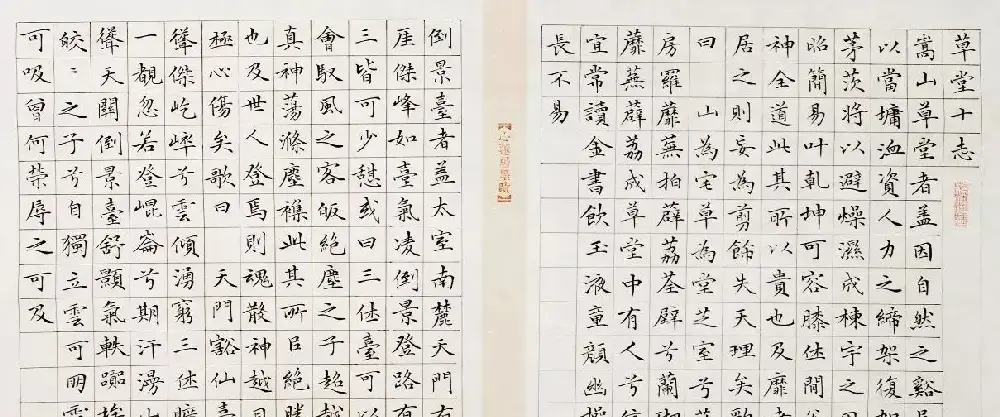 草堂十志
嵩山草堂者盖因自然之谿
以當墉洫資人力之締架復
茅茨將以避燥濕成棟宇之
昭簡易叶乾坤可容膝休閒
神全道此其所以貴也及靡
居之則妄為剪飾失天理矣
曰 山為宅草為堂芝室兮
房羅蘼蕪拍薜荔荃壁兮蘭
蘼蕪薜荔成草堂中有人兮
宜常讀金書飲玉液童顏幽
長不易
倒景臺者盖太室南麓天門
崖傑峰如臺氣凌倒景登路
三皆可少憇或曰三休臺可
會馭風之客皈絕塵之子超
真神蕩滌塵襟此其所㠯絕
也及世人登焉則魂散神越
極心傷矣歌曰 天門豁仙
聳傑屹崪兮雲傾湧窮三休
一覩忽若登崐崙兮期汗漫
聳天關倒景臺舒顥氣軼
皎〻之子兮自獨立雲可朋
可吸曾何榮辱之可及